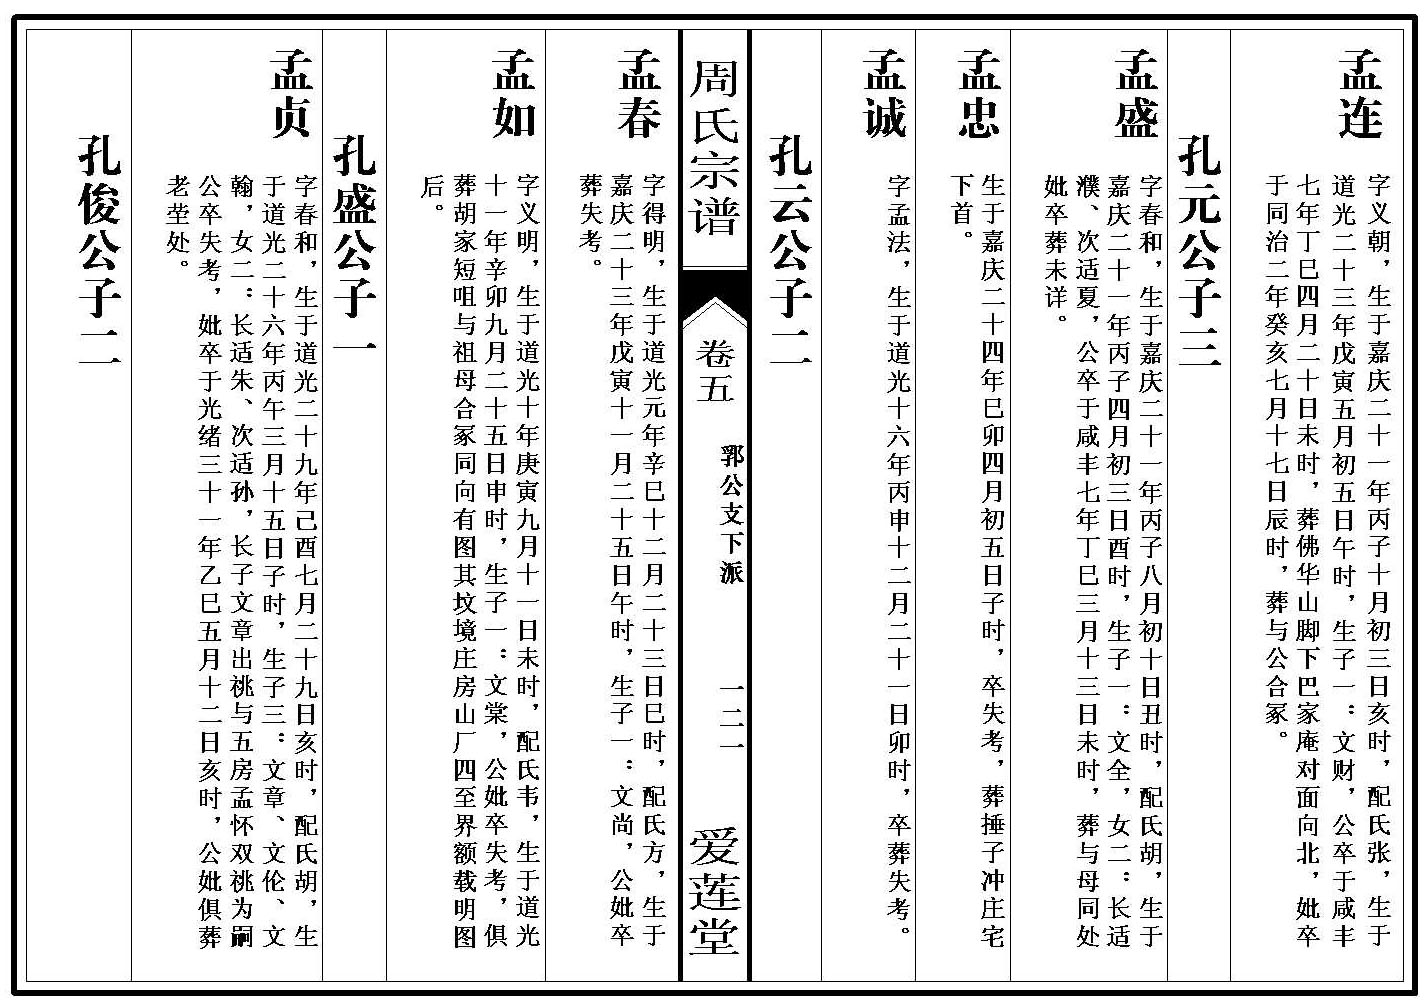 孟连
字义朝，生于嘉庆二十一年丙子十月初三日亥时，配氏张，生于
道光二十三年戊寅五月初五日午时，生子一：文财，公卒于咸丰
七年丁巳四月二十日未时，葬佛华山脚下巴家庵对面向北，妣卒
于同治二年癸亥七月十七日辰时，葬与公合冢。
孔元公子三
孟盛
字春和，生于嘉庆二十一年丙子八月初十日丑时，配氏胡，生于
嘉庆二十一年丙子四月初三日酉时，生子一：文全，女二：长适
濮、次适夏，公卒于咸丰七年丁巳三月十三日未时，葬与母同处
妣卒葬未详。
孟忠
生于嘉庆二十四年巳卯四月初五日子时，卒失考，葬捶子冲庄宅
下首。
孟诚
字孟法，生于道光十六年丙申十二月二十一日卯时，卒葬失考。
孔云公子二
周氏宗谱
卷五
郛公支下派
一二一
爱莲堂
孟春
字得明，生于道光元年辛巳十二月二十三日巳时，配氏方，生于
嘉庆二十三年戊寅十一月二十五日午时，生子一：文尚，公妣卒
葬失考。
孟如
字义明，生于道光十年庚寅九月十一日未时，配氏韦，生于道光
十一年辛卯九月二十五日申时，生子一：文棠，公妣卒失考，俱
葬胡家短咀与祖母合冢同向有图其坟境庄房山厂四至界额载明图
后。
孔盛公子一
孟贞
字春和，生于道光二十九年己酉七月二十九日亥时，配氏胡，生
于道光二十六年丙午三月十五日子时，生子三：文章、文伦、文
翰，女二：长适朱、次适孙，长子文章出祧与五房孟怀双祧为嗣
公卒失考，妣卒于光绪三十一年乙巳五月十二日亥时，公妣俱葬
老茔处。
孔俊公子二